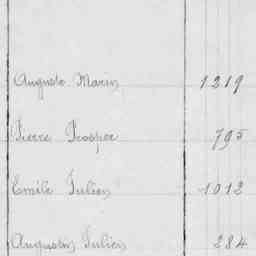 Auguste Marin 1219
Pierre Prosper 795
Emile Julien 1012
Augustin Julien 284